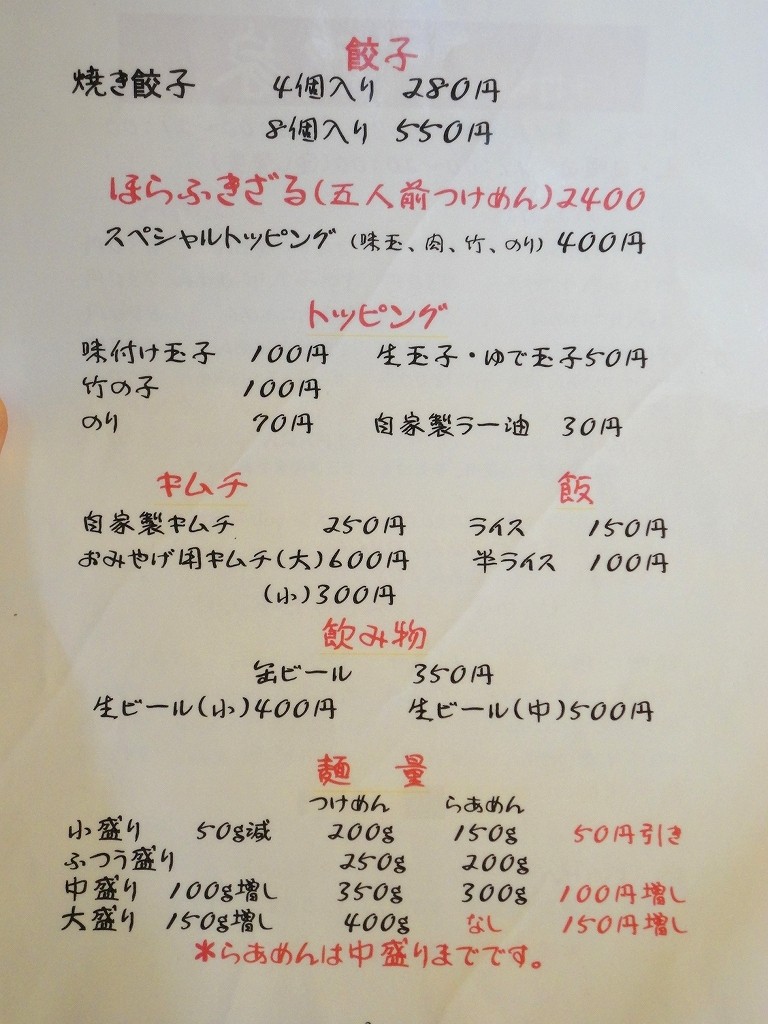 餃子
焼き餃子 4個入り 280円
8個入り 550円
ほらふきざる(五人前つけめん)2400
スペシャルトッピング (味玉、肉、竹、のり) 400円
トッピング
味付け玉子 100円 生玉子・ゆで玉子50円
竹の子 100円
のり 70円 自家製ラー油 30円
キムチ 飯
自家製キムチ 250円 ライス 150円
おみやげ用キムチ(大)600円 半ライス 100円
(小)300円
飲み物
缶ビール 350円
生ビール(小)400円 生ビール(中)500円
麺 量
つけめん らあめん
小盛り 50g減 200g 150g 50円引き
ふつう盛り 250g 200g
中盛り 100g増し 350g 300g 100円増し
大盛り 150g増し 400g なし 150円増し
*らあめんは中盛りまでです。